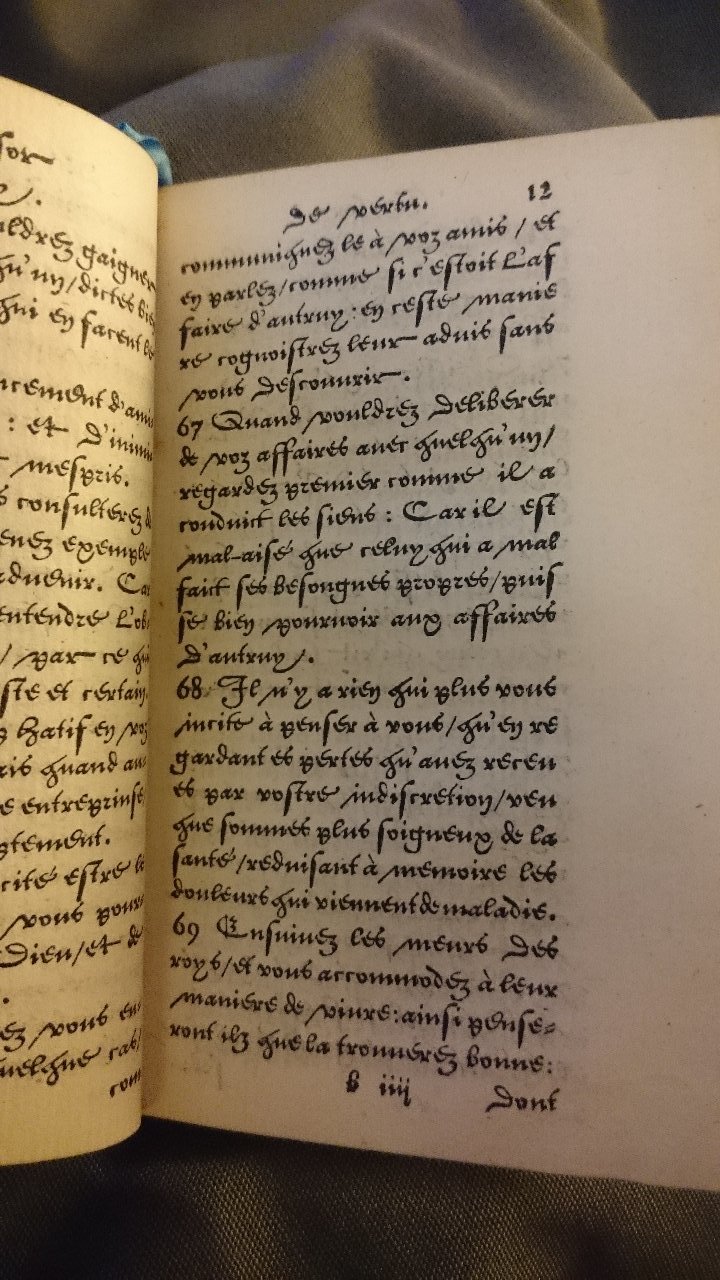 sor
.
uldrez gaigner
qu'un/dictes bie
qui en facent le
ncement d'ami
: et d'inimi
mespris.
s consulterez d
enez exemple
aduenir. Car
entendre l'ob
/ par ce qu
ste et certain
hatif en voz
quand au
e entreprinse
ptement.
cite estre le
vous pour
Dieu/et de
.
ez vous en
uelque cas/
com
de vertu. 12
communiquez le à voz amis / et
en parlez/comme si c'estoit l'af
faire d'autruy: en ceste manie
re cognoistrez leur aduis sans
vous descouurir.
67 Quand vouldrez deliberer
de voz affaires auec quelqu'un/
regardez premier comme il a
conduict les siens: Car il est
mal-aisé que celuy qui a mal
faict ses besongnes propres/puis
se bien pouruoir aux affaires
d'autruy.
68 Il n'y a rien qui plus vous
incite à penser à vous/qu'en re
gardant es pertes qu'auez receu
es par vostre indiscretion/veu
que sommes plus soigneux de la
santé/reduisant à memoire les
douleurs qui viennent de maladie.
69 Ensuiuez les meurs des
roys/et vous accommodez à leur
maniere de viure: ainsi pense-
ront ilz que la trouuerez bonne:
b iiij dont